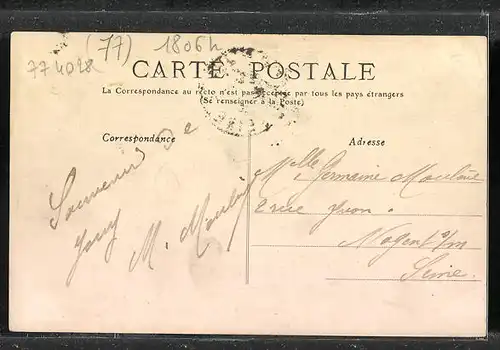 (77) 1806h
774028
CARTE POSTALE
La Correspondance au recto n'est pas acceptée par tous les pays étrangers
(Se renseigner à la Poste)
Correspondance
Adresse
Souvenir de
Jouy
M. Moulin
Mlle Germaine
2 rue Yvon.
Nogent s/m
Seine.